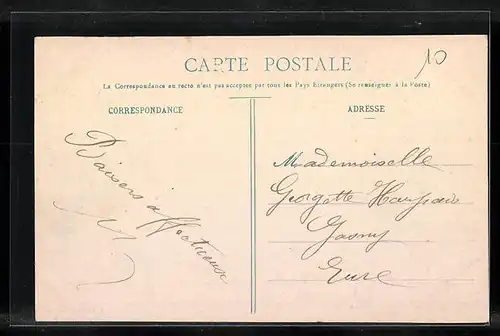 CARTE POSTALE
10
La Correspondance au recto n'est pas acceptée par tous les Pays Etrangers (Se renseigner à la Poste)
CORRESPONDANCE
ADRESSE
Baisers affectueux
Mademoiselle
Georgette
Gasny
Eure